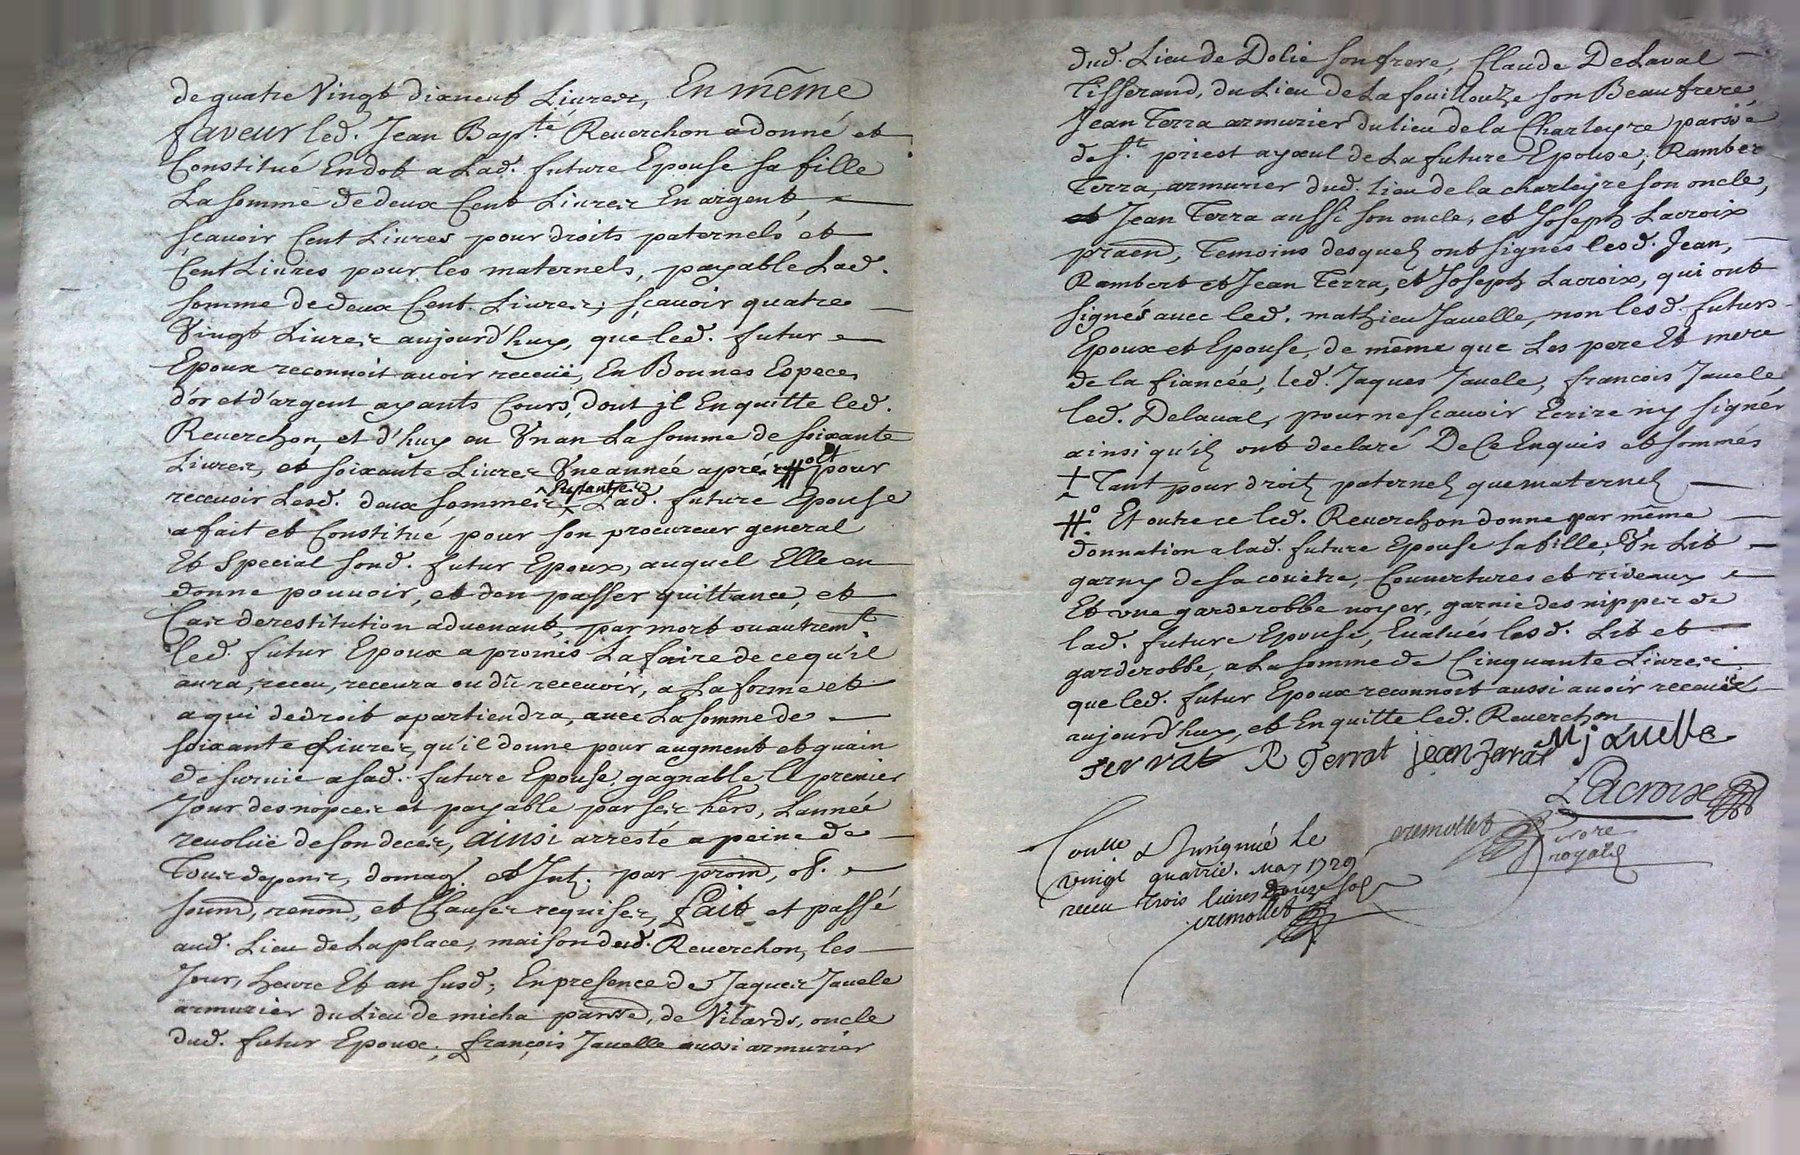 de quatre Vingt dixneuf Livres, En même
faveur led. Jean Bap.te Reverchon a donné et
Constitué En dot a Lad. future Epouse sa fille
La somme de deux Cent Livres En argent,
sçavoir Cent Livres pour droits paternels et
Cent Livres pour les maternels, payable Lad.
somme de deux Cent Livres, sçavoir quatre
Vingt Livres aujourd'huy, que led. futur
Epoux reconnoit avoir receüe, En Bonnes Especes
d'or et d'argent ayants Cours, dont jl En quitte led.
Reverchon, et d'huy en Vn an La somme de soixante
Livres, et soixante Livres Vne année aprés #o et pour
recevoir Lesd. deux sommes Lad. future Epouse
a fait et Constitué pour son procureur general
Et Special sond. futur Epoux, auquel Elle en
donne pouvoir, et d'en passer quittance, et
Cas de restitution advenant, par mort ou autremt.
led. futur Epoux a promis La faire de ce qu'il
aura, receu, recevra ou dû recevoir, a La forme et
a qui de droit apartiendra, avec La somme de
soixante Livres, qu'il donne pour augment et guain
de survie a sad. future Epouse, gagnable Le premier
Jour des nopces et payable par ses hers, L'année
revolüe de son deces, ainsi arresté a peine de
Tous depens, domag. et Int. par promd, ob.
soumd, renond, et Clauses requises, fait et passé
aud. Lieu de Laplace, maison dud. Reverchon, les
Jour, heure Et an susd; En presence de Jaques Javele
armurier du Lieu de micha parsse, de Vilards, oncle
dud. futur Epoux, françois Javelle aussi armurier
dud. Lieu de Dolie son frere, Claude DeLaval
Tisserand, du Lieu de La fouillouze son Beaufrere,
Jean Terra armurier du lieu de la Charleyre parsse
de St. priest ayoeul de La future Epouse, Rambert
Terra, armurier dud. Lieu de la charleyre son oncle,
et Jean Terra aussi son oncle, et Joseph Lacroix
pratend, Temoins desquels ont signés lesd. Jean,
Rambert et Jean Terra, et Joseph Lacroix, qui ont
signés avec led. mathieu Javelle, non lesd. futurs
Epoux et Epouse, de même que Les pere Et mere
de la fiancée, led. Jaques Javele, françois Javele,
led. Delaval, pour ne scavoir Ecrire ny signer
ainsi qu'ils ont declaré De Ce Enquis et sommés
+ Tant pour droits paternels que maternels
#o Et outre ce led. Reverchon donne par même
donnation a lad. future Epouse sa fille, Vn Lit
garny de sa coüetre, Couvertures et rideaux
Et vne garderobbe noyer, garnie des nippes de
lad. future Epouse, Evalués lesd. Lit et
garderobbe, a La somme de Cinquante Livres
que led. futur Epoux reconnoit aussi avoir receüe
aujourd'huy, et En quitte led. Reverchon
Terrat R Terrat jean Terrat M javelle
Lacroix
cremollet nore royal
Coulle & Insignué le
vingt quatrie. May 1729
receu trois livres douze sols
cremollet